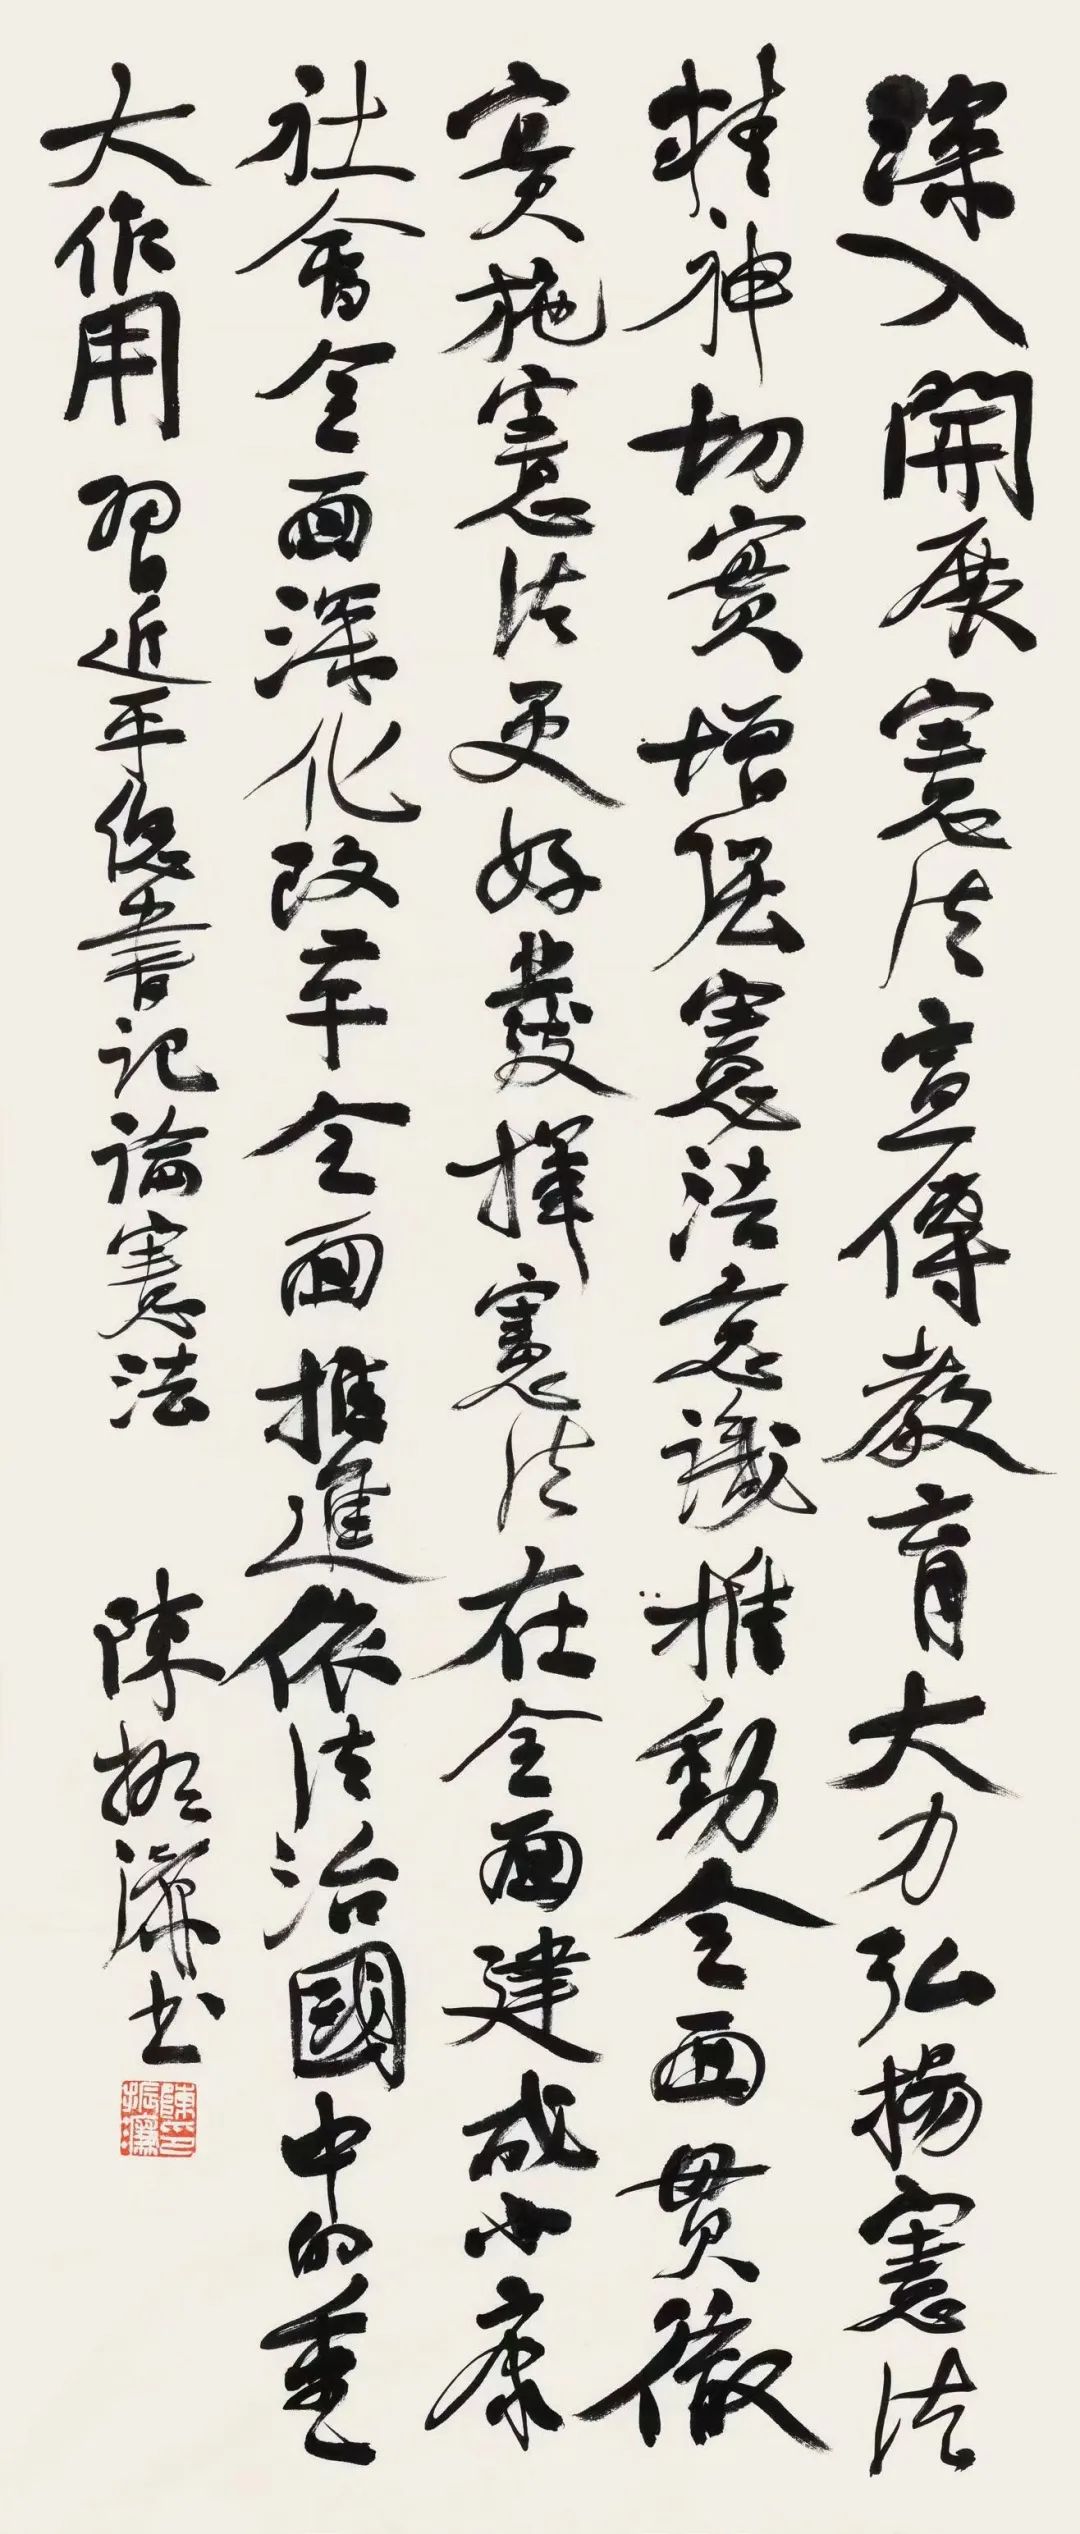 深入開展憲法宣傳教育大力弘揚憲法
精神切實增强憲法意識推動全面貫徹
實施憲法更好發揮憲法在全面建成小康
社會全面深化改革全面推進依法治國中的重
大作用 習近平總書記論憲法 陳振濂書
陳振濂印